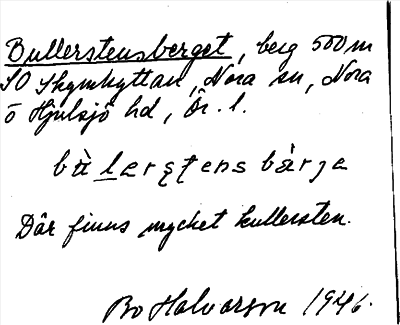 Bullerstensberget, berg 500 m
SO Skymhyttan, Nora sn, Nora
o Hjulsjö hd, Ör. l.
bàlerstens bàrjə
Där finns mycket kullersten.
Bo Halvarson 1946.